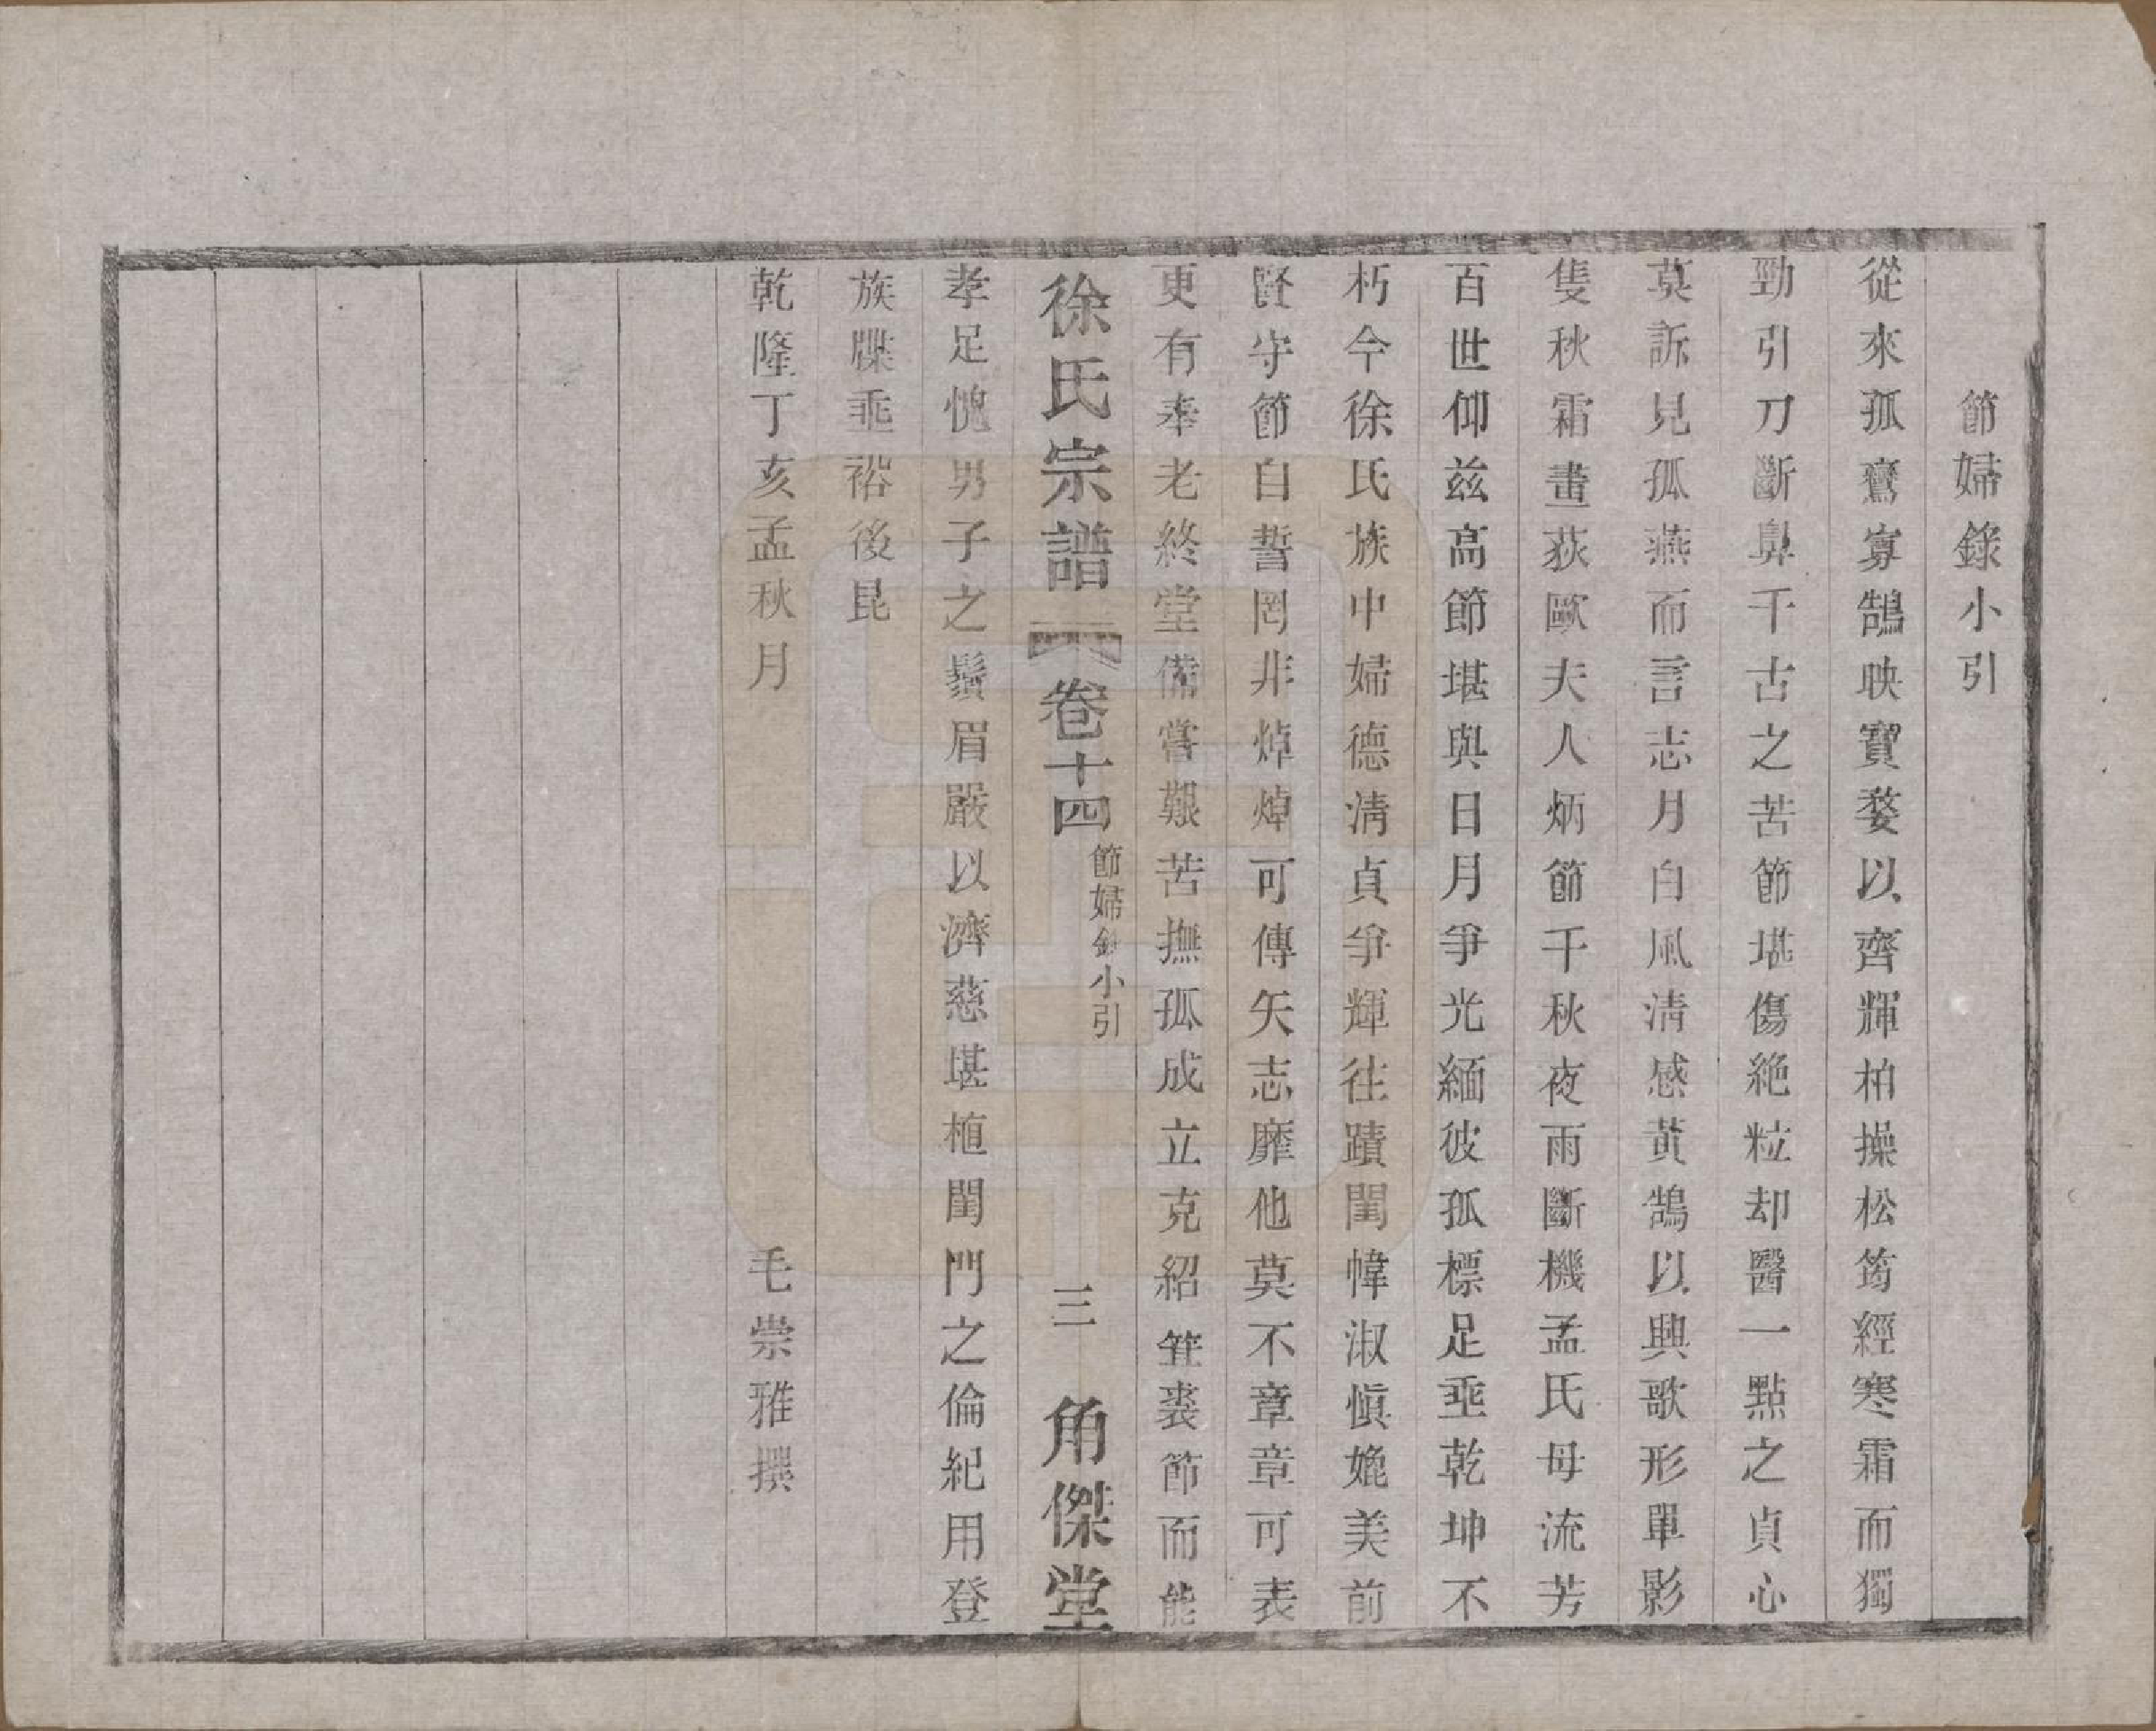 節婦錄小引
從來孤鸞寡鵠映寶婺以齊輝柏操松筠經寒霜而獨
勁引刀斷鼻千古之苦節堪傷絶粒却醫一點之貞心
莫訴見孤燕而言志月白風清感黃鵠以興歌形單影
隻秋霜畫荻歐夫人炳節千秋夜雨斷機孟氏母流芳
百世仰兹高節堪與日月爭光緬彼孤標足垂乾坤不
朽今徐氏族中婦德淸貞爭輝往蹟閨幃淑愼媲美前
賢守節自誓罔非焯焯可傳矢志靡他莫不章章可表
更有奉老終堂備嘗艱苦撫孤成立克紹箕裘節而能
徐氏宗譜 卷十四 節婦錄小引 三 角傑堂
孝足愧男子之鬚眉嚴以濟慈堪植閨門之倫紀用登
族牒垂裕後昆
乾隆丁亥孟秋月 毛崇雅撰